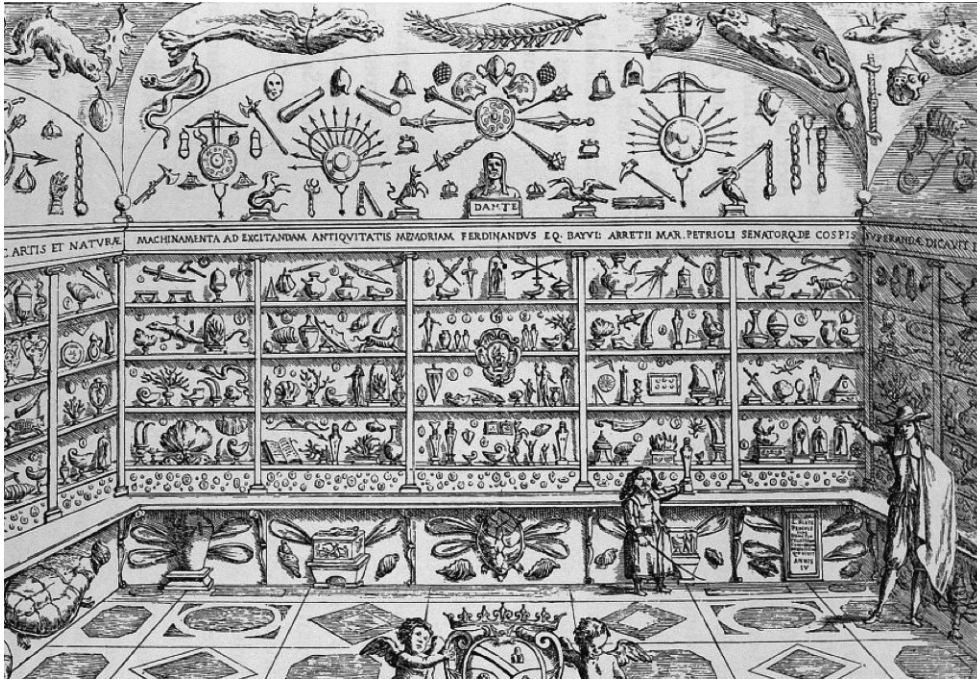 DANTE
ARTIS ET NATVRÆ MACHINAMENTA AD EXCITANDAM ANTIQVITATIS MEMORIAM FERDINANDVS EQ. BAYVL: ARRETII MAR. PETRIOLI SENATORQ.DE COSPIS SVPERANDÆ DICAVIT
ANNIS
IV